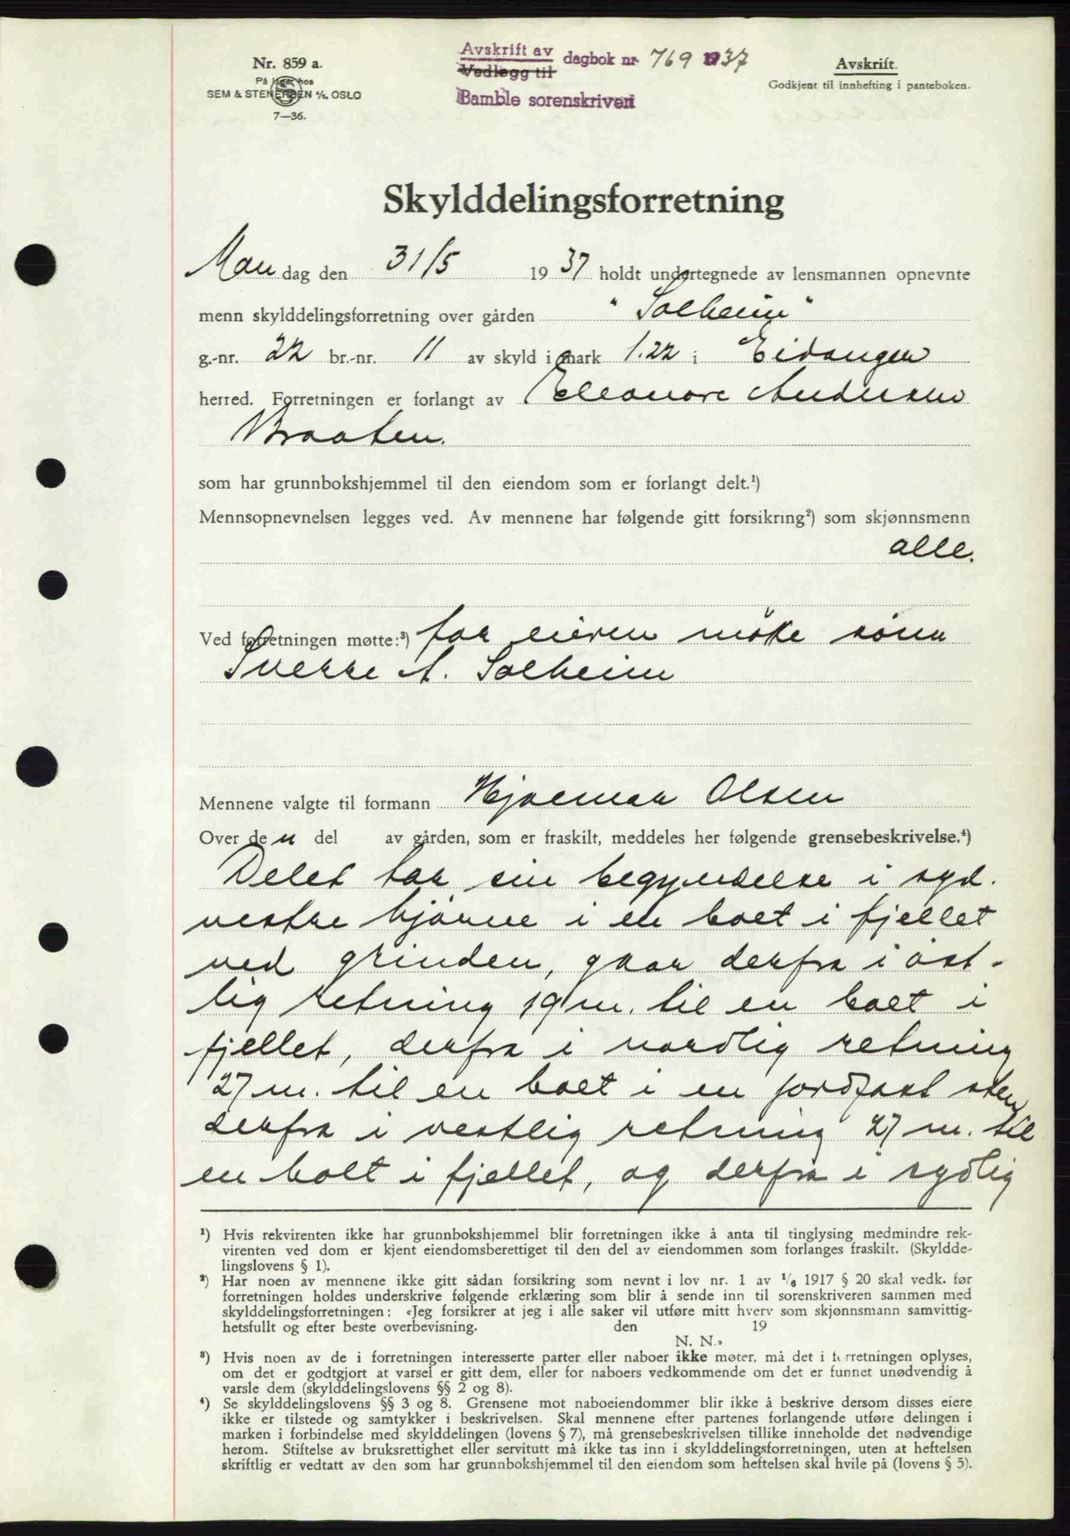 Nr. 859 a.
På lager hos
SEM & STENERSEN A/S, OSLO
7—36.
Avskrift av
Vedlegg til
dagbok nr 769 1937
Bamble sorenskriveri
Avskrift.
Godkjent til innhefting i panteboken.
Skylddelingsforretning
Mandag den 31/5 1937 holdt undertegnede av lensmannen opnevnte
menn skylddelingsforretning over gården "Solheim"
g.-nr. 22 br.-nr. 11 av skyld i mark 1.22 i Eidanger
herred. Forretningen er forlangt av Eleonore Andersen
Braaten.
som har grunnbokshjemmel til den eiendom som er forlangt delt.¹)
Mennsopnevnelsen legges ved. Av mennene har følgende gitt forsikring²) som skjønnsmenn
alle.
Ved forretningen møtte:³) for eieren møtte sönn
Sverre A. Solheim
Mennene valgte til formann Hjalmar Olsen
Over den del av gården, som er fraskilt, meddeles her følgende grensebeskrivelse.⁴)
Delet tar sin begyndelse i syd.
vestre hjörne i en bolt i fjellet
ved grinden, gaar derfra i öst-
lig retning 19 m. til en bolt i
fjellet, derfra i nordlig retning
27 m. til en bolt i en jordfast sten
derfra i vestlig retning 27 m. til
en bolt i fjellet, og derfra i sydlig
¹) Hvis rekvirenten ikke har grunnbokshjemmel blir forretningen ikke å anta til tinglysing medmindre rek-
virenten ved dom er kjent eiendomsberettiget til den del av eiendommen som forlanges fraskilt. (Skyldde-
lingslovens § 1).
²) Har noen av mennene ikke gitt sådan forsikring som nevnt i lov nr. 1 av 1/6 1917 § 20 skal vedk. før
forretningen holdes underskrive følgende erklæring som blir å sende inn til sorenskriveren sammen med
skylddelingsforretningen: «Jeg forsikrer at jeg i alle saker vil utføre mitt hverv som skjønnsmann samvittig-
hetsfullt og efter beste overbevisning. den 19
N. N.»
³) Hvis noen av de i forretningen interesserte parter eller naboer ikke møter, må det i forretningen oplyses,
om det er godtgjort at varsel er gitt dem, eller for naboers vedkommende om det er funnet unødvendig å
varsle dem (skylddelingslovens §§ 2 og 8).
⁴) Se skylddelingslovens §§ 3 og 8. Grensene mot naboeiendommer blir ikke å beskrive dersom disses eiere
ikke er tilstede og samtykker i beskrivelsen. Skal mennene efter partenes forlangende utføre delingen i
marken i forbindelse med skylddelingen (lovens § 7), må grensebeskrivelsen tillike inneholde det nødvendige
herom. Stiftelse av bruksrettighet eller servitutt må ikke tas inn i skylddelingsforretningen, uten at heftelsen
skriftlig er vedtatt av den som har grunnbokshjemmel til den eiendom som heftelsen skal hvile på (lovens § 5).